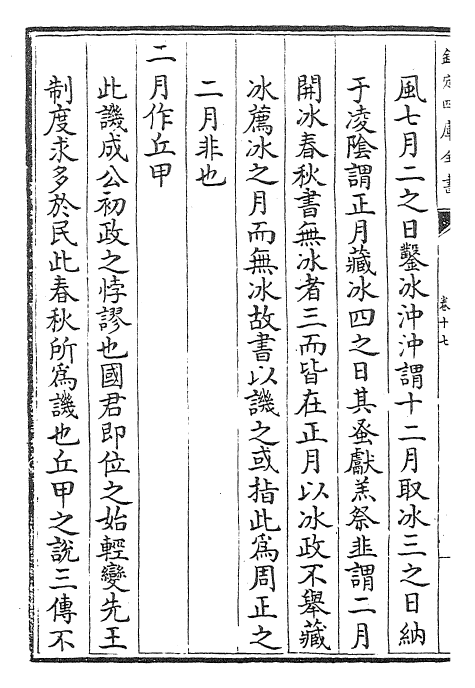 欽定四庫全書
卷十七
風七月二之日鑿冰沖沖謂十二月取冰三之日納
于凌陰謂正月藏冰四之日其蚤獻羔祭韭謂二月
開冰春秋書無冰者三而皆在正月以冰政不舉藏
冰薦冰之月而無冰故書以譏之或指此為周正之
二月非也
二月作丘甲
此譏成公初政之悖謬也國君即位之始輕變先王
制度求多於民此春秋所為譏也丘甲之說三傳不